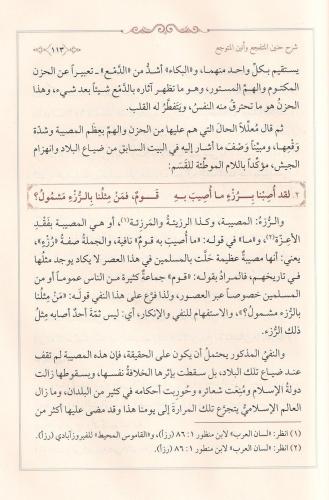 شرح حنين المتفجع وأنين المتوجع
١١٣
يستقيم بكلّ واحد منهما، و«البكاء» أشدُّ من «الدَّمْع» - تعبيراً عن الحزن
المكتوم والهمّ المستور، وهو ما تظهر آثاره بالدَّمْع شيئاً بعد شيء، وهذا
الحزنُ هو ما تحترقُ منه النفسُ، ويَتفَطَّر له القلب.
ثم قال مُعلِّلاً الحال التي هم عليها من الحزن والهمّ بعِظَم المصيبة وشدّة
وَقْعها، ومبيِّناً وَصْفَ ما أشار إليه في البيت السابق من ضياع البلاد وانهزام
الجيش، مؤكّداً باللام الموطِّئة للقَسَم:
٢ـ لقد أُصِبْنا بِرُزْءٍ ما أُصيبَ به قَومٌ، فمَنْ مِثْلُنا بالرُّزْءِ مَشمولُ؟
والرُّزءُ: المصيبة، وكذا الرزيئةُ والمَرزِئة(١)، أو هي المصيبة بفَقْدِ
الأعِزّة(٢)، و«ما» في قوله: «ما أُصيبَ به قومٌ» نافية، والجملة صفةُ «رُزْءٍ»،
يعني: أنها مصيبةٌ عظيمة حَلَّت بالمسلمين في هذا العصر لا يكاد يوجد مثلُها
في تاريخهم، فالمرادُ بقوله: «قوم» جماعةٌ كثيرة من الناس عموماً أو من
المسلمين خصوصاً عبر العصور، ولذا فرَّع على هذا النفي قولَه: «فمَنْ مِثْلُنا
بالرُّزء مشمولُ؟»، والاستفهام للنفي والإنكار، أي: ليس ثمّةَ أحدٌ أصابه مثلُ
ذلك الرُّزء.
والنفيُ المذكور يحتملُ أن يكون على الحقيقة، فإن هذه المصيبة لم تقف
عند ضياع تلك البلاد، بل سقطت بإثرها الخلافةُ نفسُها، وبسقوطها زالت
دولةُ الإسلام ومُنِعَت شعائرُه وحُورِبت أحكامه في كثير من البلدان، وما زال
العالم الإسلاميُّ يتجرَّع تلك المرارةَ إلى يومنا هذا وقد مضى عليها أكثر من
(١) انظر: «لسان العرب» لابن منظور ١: ٨٦ (رزأ)، و«القاموس المحيط» للفيروزآبادي (رزأ).
(٢) انظر: «لسان العرب» لابن منظور ١: ٨٦ (رزأ).